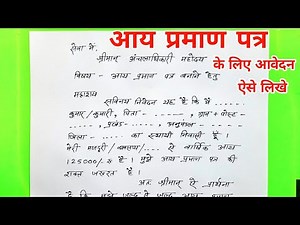 आय प्रमाण पत्र
के लिए आवेदन
ऐसे लिखे
सेवा में,
श्रीमान् अंचलाधिकारी महोदय
विषय - आय प्रमाण पत्र बनाने हेतु
महाशय
सविनय निवेदन यह है कि मैं
कुमार/कुमारी, पिता - ग्राम - पोस्ट -
प्रखंड - अनुमंडल -
जिला - का स्थायी निवासी हूँ।
मेरी मजदूरी / से वार्षिक आय
125000/- रु है। मुझे आय प्रमाण पत्र की
सख्त जरूरत है।
अतः श्रीमान् से प्रार्थना
है कि मुझे जल्द से जल्द आय प्रमाण